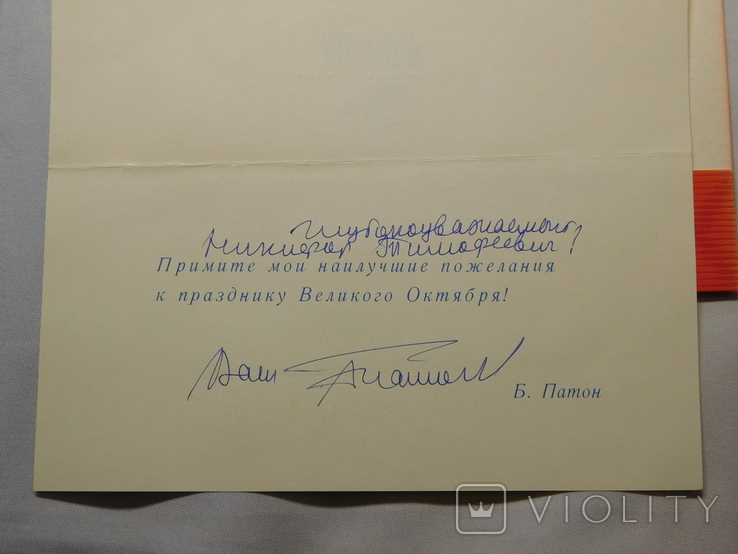 Глубокоуважаемый
Никифор Тимофеевич!
Примите мои наилучшие пожелания
к празднику Великого Октября!
Ваш Патон
Б. Патон
VIOLITY